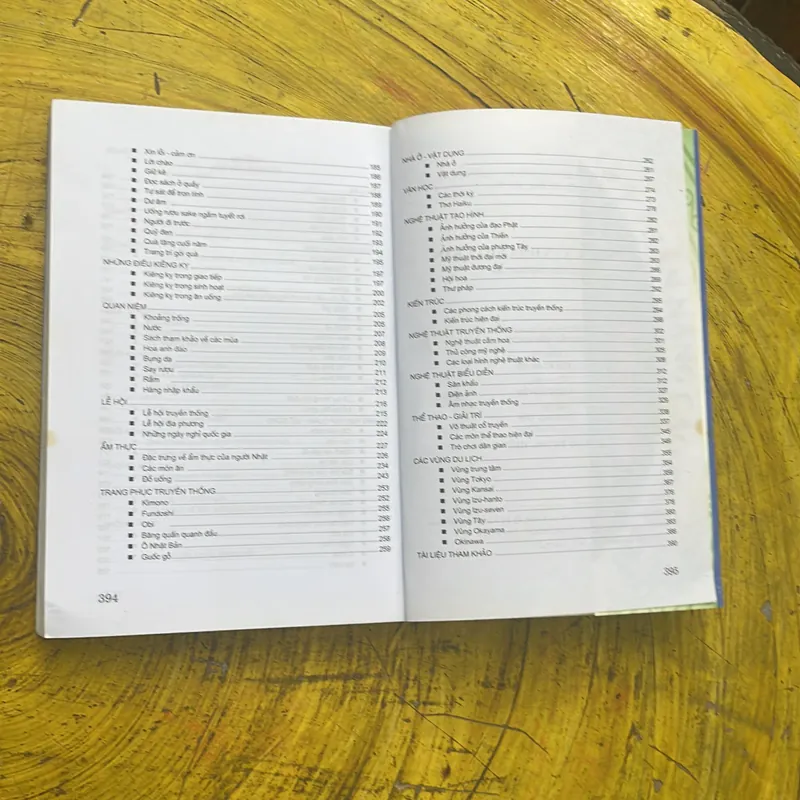 Xin lỗi - cảm ơn
Lời chào 185
Giữ kẽ 186
Đọc sách ở quầy 187
Tự sát để trọn tình 188
Dư âm 189
Uống rượu sake ngắm tuyết rơi 190
Người đi trước 191
Quỹ đen 192
Quà tặng cuối năm 193
Trang trí gói quà 194
NHỮNG ĐIỀU KIÊNG KỴ 195
Kiêng kỵ trong giao tiếp 197
Kiêng kỵ trong sinh hoạt 197
Kiêng kỵ trong ăn uống 200
QUAN NIỆM 202
Khoảng trống 205
Nước 205
Sách tham khảo về các mùa 207
Hoa anh đào 208
Bụng dạ 209
Say rượu 210
Rằm 211
Hàng nhập khẩu 212
LỄ HỘI 213
Lễ hội truyền thống 215
Lễ hội địa phương 222
Những ngày nghỉ quốc gia 224
ẨM THỰC 227
Đặc trưng về ẩm thực của người Nhật 226
Các món ăn 234
Đồ uống 243
TRANG PHỤC TRUYỀN THỐNG 253
Kimono 252
Fundoshi 255
Obi 256
Băng quấn quanh đầu 257
Ô Nhật Bản 258
Guốc gỗ 259
394
NHÀ Ở - VẬT DỤNG
Nhà ở
Vật dụng
VĂN HỌC
Các thời kỳ
Thơ Haiku
NGHỆ THUẬT TẠO HÌNH
Ảnh hưởng của đạo Phật
Ảnh hưởng của Thiền
Ảnh hưởng của phương Tây
Mỹ thuật thời đại mới
Mỹ thuật đương đại
Hội hoạ
Thư pháp
KIẾN TRÚC
Các phong cách kiến trúc truyền thống
Kiến trúc hiện đại
NGHỆ THUẬT TRUYỀN THỐNG
Nghệ thuật cắm hoa
Thủ công mỹ nghệ
Các loại hình nghệ thuật khác
NGHỆ THUẬT BIỂU DIỄN
Sân khấu
Điện ảnh
Âm nhạc truyền thống
THỂ THAO - GIẢI TRÍ
Võ thuật cổ truyền
Các môn thể thao hiện đại
Trò chơi dân gian
CÁC VÙNG DU LỊCH
Vùng trung tâm
Vùng Tokyo
Vùng Kansai
Vùng Izu-hanto
Vùng Izu-seven
Vùng Tây
Vùng Okayama
Okinawa
TÀI LIỆU THAM KHẢO
395